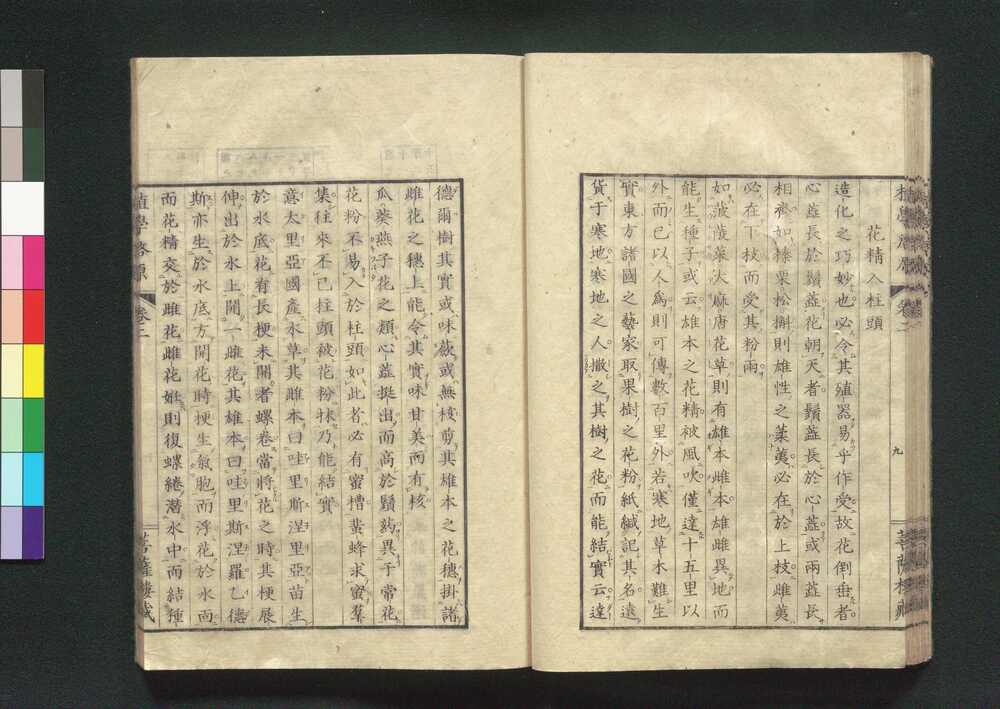 花精入柱頭
造化之巧妙也必令其殖器易乎作受故花倒垂者
心蕋長於鬚蕋花朝天者鬚蕋長於心蕋或兩蕋長
相齊如榛栗松槲則雄性之葇荑必在於上枝雌荑
必在下枝而受其粉雨
如菠薐菜大麻唐花草則有雄本雌本雄雌異地而
能生種子或云雄本之花精被風吹僅達十五里以
外而已以人為則可傳數百里外若寒地草木難生
實東方諸國之藝家取果樹之花粉紙緘記其名遠
貨于寒地寒地之人撒之其樹之花而能結實云達
九
德爾樹其實或味蔹或無核剪其雄本之花穗掛諸
雌花之穗上能令其實味甘美而有核
瓜葵燕子花之類心蕋挺出而高於鬚葯異于常花
花粉不易入於柱頭如此者必有蜜槽蜚蜂求蜜羣
集往來不已柱頭被花粉抹乃能結實
意太里亞國產水草其雌本曰哇里斯涅里亞苗生
於水底花有長梗未開者螺卷當將花之時其梗展
伸出於水上開一雌花其雄本曰哇里斯涅羅乙德
斯亦生於水底方開花時梗生氣胞而浮花於水面
而花精交於雌花雌花姙則復螺綣潛水中而結種
植學啓原
卷二
菩薩樓藏